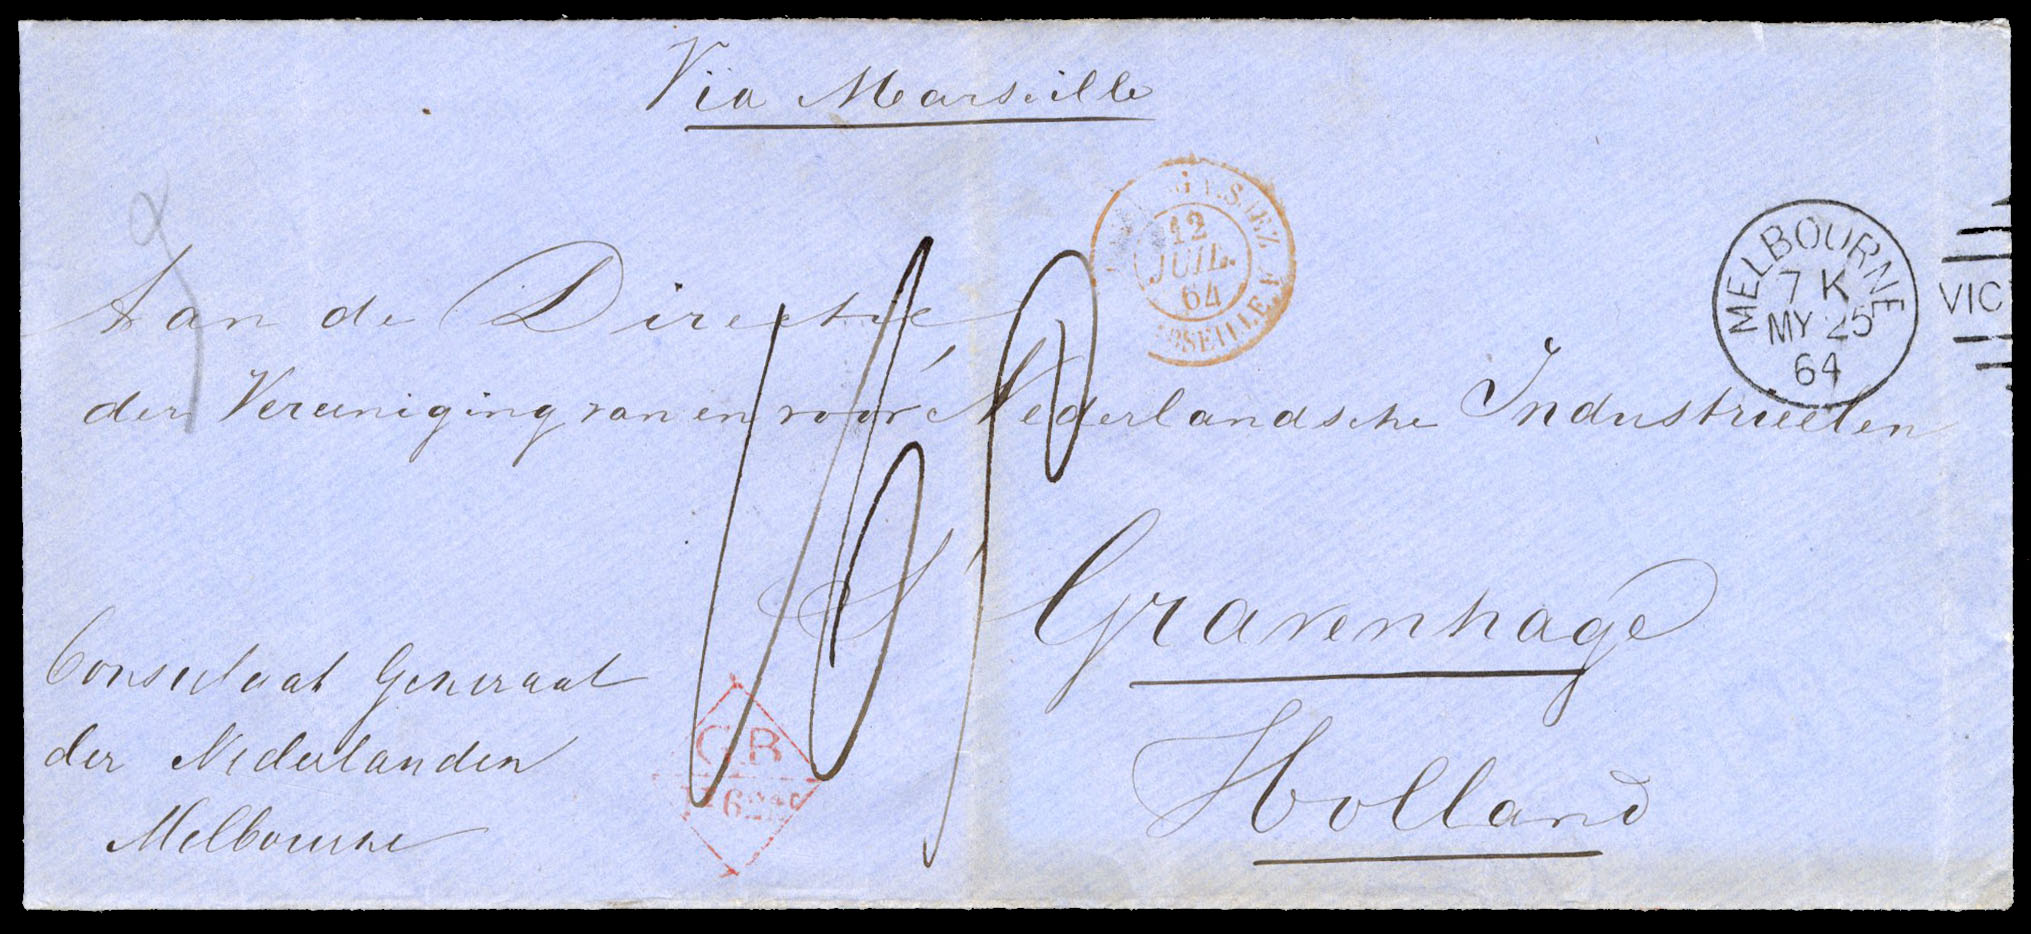 Via Marseille
Aan de Directie
der Vereeniging van en voor Nederlandsche Industrieelen
S' Gravenhage
Holland
Consulaat Generaal
der Nederlanden
Melbourne
MELBOURNE
7 K
MY 25
64
VIC
SUEZ
12
JUIL.
64
GB